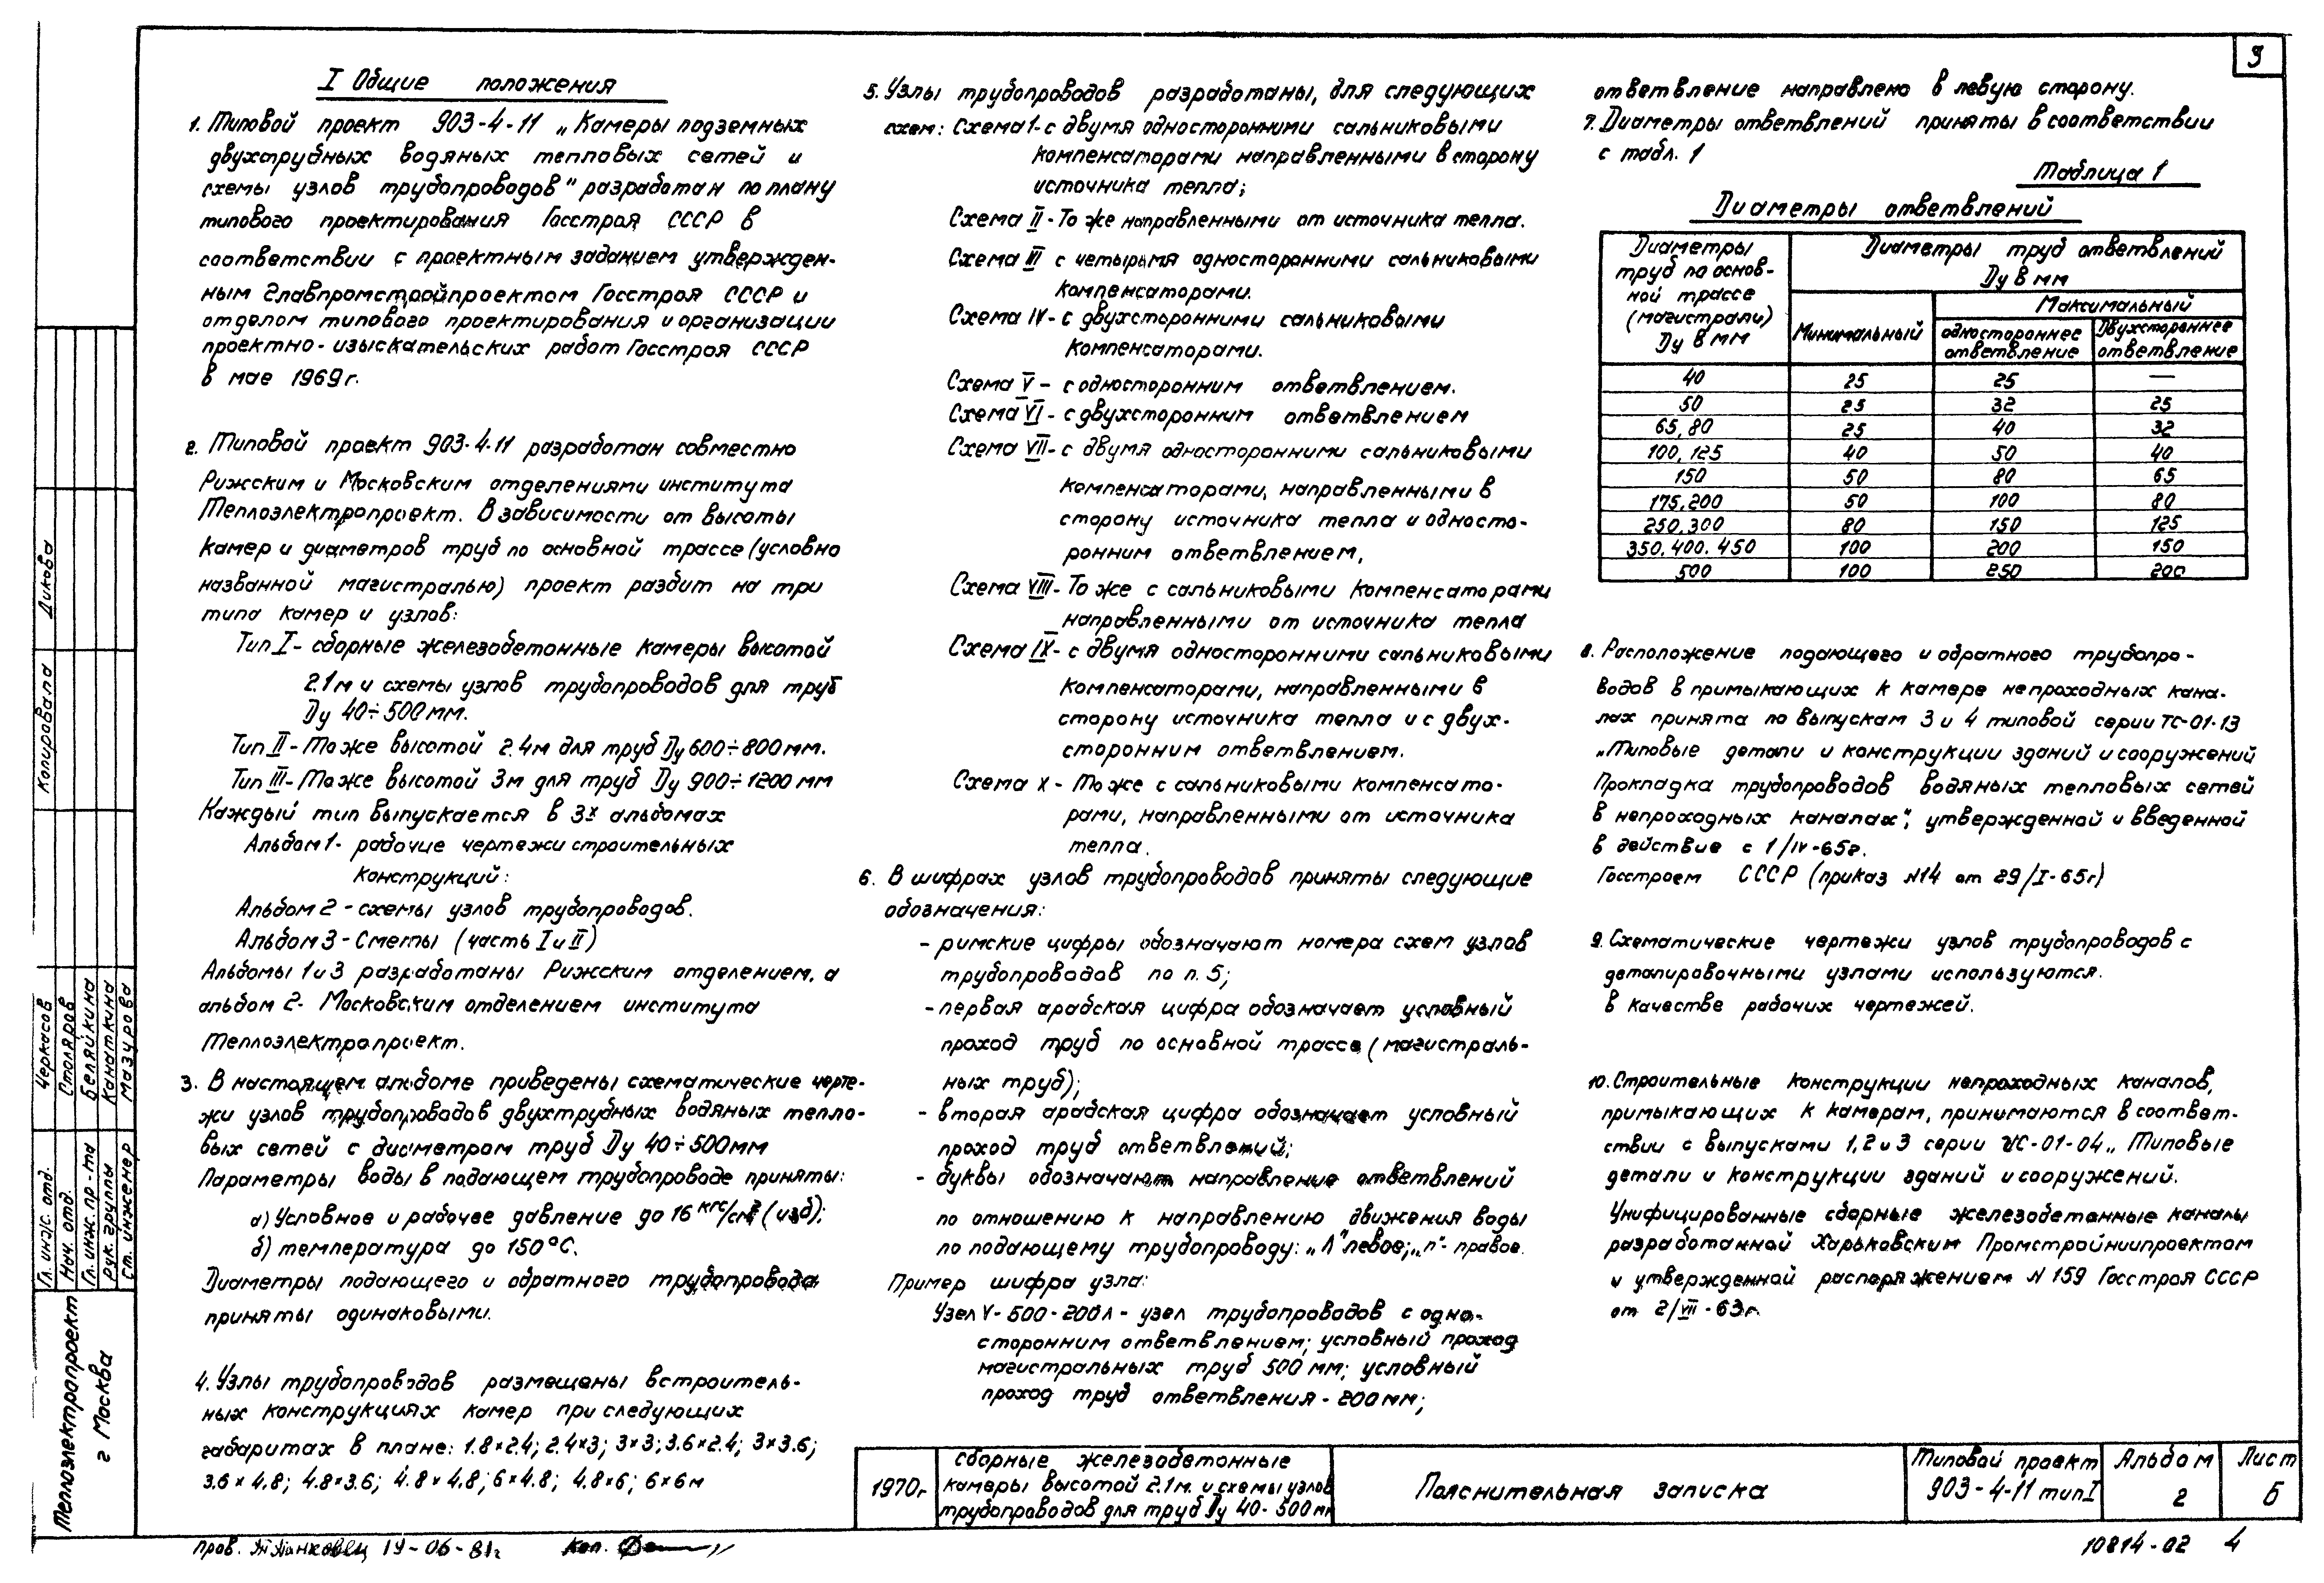 9
I Общие положения
1. Типовой проект 903-4-11 „Камеры подземных
двухтрубных водяных тепловых сетей и
схемы узлов трубопроводов" разработан по плану
типового проектирования Госстроя СССР в
соответствии с проектным заданием утвержден-
ным Главпромстройпроектом Госстроя СССР и
отделом типового проектирования и организации
проектно-изыскательских работ Госстроя СССР
в мае 1969г.
2. Типовой проект 903-4-11 разработан совместно
Рижским и Московским отделениями института
Теплоэлектропроект. В зависимости от высоты
камер и диаметров труб по основной трассе (условно
названной магистралью) проект разбит на три
типа камер и узлов:
Тип I - сборные железобетонные камеры высотой
2.1м и схемы узлов трубопроводов для труб
Ду 40÷500мм.
Тип II - То же высотой 2.4м для труб Ду 600÷800мм.
Тип III - То же высотой 3м для труб Ду 900÷1200мм
Каждый тип выпускается в 3х альбомах
Альбом 1 - рабочие чертежи строительных
конструкций:
Альбом 2 - схемы узлов трубопроводов.
Альбом 3 - Сметы (часть I и II)
Альбомы 1 и 3 разработаны Рижским отделением, а
альбом 2 - Московским отделением института
Теплоэлектропроект.
3. В настоящем альбоме приведены схематические черте-
жи узлов трубопроводов двухтрубных водяных тепло-
вых сетей с диаметром труб Ду 40÷500мм
Параметры воды в подающем трубопроводе приняты:
а) Условное и рабочее давление до 16 кгс/см² (изб);
б) температура до 150°С.
Диаметры подающего и обратного трубопровода
приняты одинаковыми.
4. Узлы трубопроводов размещены в строитель-
ных конструкциях камер при следующих
габаритах в плане: 1.8×2.4; 2.4×3; 3×3; 3.6×2.4; 3×3.6;
3.6×4.8; 4.8×3.6; 4.8×4.8; 6×4.8; 4.8×6; 6×6м
5. Узлы трубопроводов разработаны, для следующих
схем: Схема 1 - с двумя односторонними сальниковыми
компенсаторами направленными в сторону
источника тепла;
Схема II - То же направленными от источника тепла.
Схема III с четырьмя односторонними сальниковыми
компенсаторами.
Схема IV - с двухсторонними сальниковыми
компенсаторами.
Схема V - с односторонним ответвлением.
Схема VI - с двухсторонним ответвлением
Схема VII - с двумя односторонними сальниковыми
компенсаторами, направленными в
сторону источника тепла и односто-
ронним ответвлением,
Схема VIII - То же с сальниковыми компенсаторами
направленными от источника тепла
Схема IX - с двумя односторонними сальниковыми
компенсаторами, направленными в
сторону источника тепла и с двух-
сторонним ответвлением.
Схема X - То же с сальниковыми компенсато-
рами, направленными от источника
тепла.
6. В шифрах узлов трубопроводов приняты следующие
обозначения:
- римские цифры обозначают номера схем узлов
трубопроводов по п. 5;
- первая арабская цифра обозначает условный
проход труб по основной трассе (магистраль-
ных труб);
- вторая арабская цифра обозначает условный
проход труб ответвлений;
- буквы обозначают направление ответвлений
по отношению к направлению движения воды
по подающему трубопроводу: „Л" левое; „п" - правое.
Пример шифра узла:
Узел V - 500 - 200л - узел трубопроводов с одно-
сторонним ответвлением; условный проход
магистральных труб 500 мм; условный
проход труб ответвления - 200мм;
ответвление направлено в левую сторону.
7. Диаметры ответвлений приняты в соответствии
с табл. 1
Таблица 1
Диаметры ответвлений
Диаметры труб по основ-ной трассе (магистрали) Ду в мм | Диаметры труб ответвлений Ду в мм
Минимальный | Максимальный
одностороннее ответвление | Двухстороннее ответвление
40 25 25 —
50 25 32 25
65, 80 25 40 32
100, 125 40 50 40
150 50 80 65
175, 200 50 100 80
250, 300 80 150 125
350. 400. 450 100 200 150
500 100 250 200
8. Расположение подающего и обратного трубопро-
водов в примыкающих к камере непроходных кана-
лах принята по выпускам 3 и 4 типовой серии ТС-01-13
„Типовые детали и конструкции зданий и сооружений
Прокладка трубопроводов водяных тепловых сетей
в непроходных каналах", утвержденной и введенной
в действие с 1/IV-65г.
Госстроем СССР (приказ N14 от 29/I-65г)
9. Схематические чертежи узлов трубопроводов с
деталировочными узлами используются.
в качестве рабочих чертежей.
10. Строительные конструкции непроходных каналов,
примыкающих к камерам, принимаются в соответ-
ствии с выпусками 1, 2 и 3 серии ИС-01-04 „ Типовые
детали и конструкции зданий и сооружений.
Унифицированные сборные железобетонные каналы
разработанной Харьковским Промстройниипроектом
и утвержденной распоряжением N 159 Госстроя СССР
от 2/VII-63г.
1970г
Сборные железобетонные
камеры высотой 2.1м. и схемы узлов
трубопроводов для труб Ду 40-500мм
Пояснительная записка
Типовой проект
903-4-11 тип I
Альбом
2
Лист
Б
Копировала Дикова
Гл. инж. отд. Черкасов
Нач. отд. Столяров
Гл. инж. пр-та Беляйкина
Рук. группы Канаткина
Ст. инженер Мазурова
Теплоэлектропроект
г Москва
Пров. 19-06-81г Коп.
10814-02 4